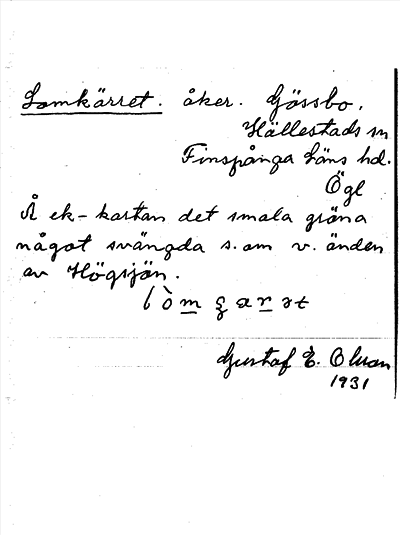 Lomkärret. åker. Gössbo,
Hällestads sn
Finspånga läns hd.
Ögl
Å ek-kartan det smala gröna
något svängda s. om v. änden
av Högsjön.
Gustaf E. Olsson
1931